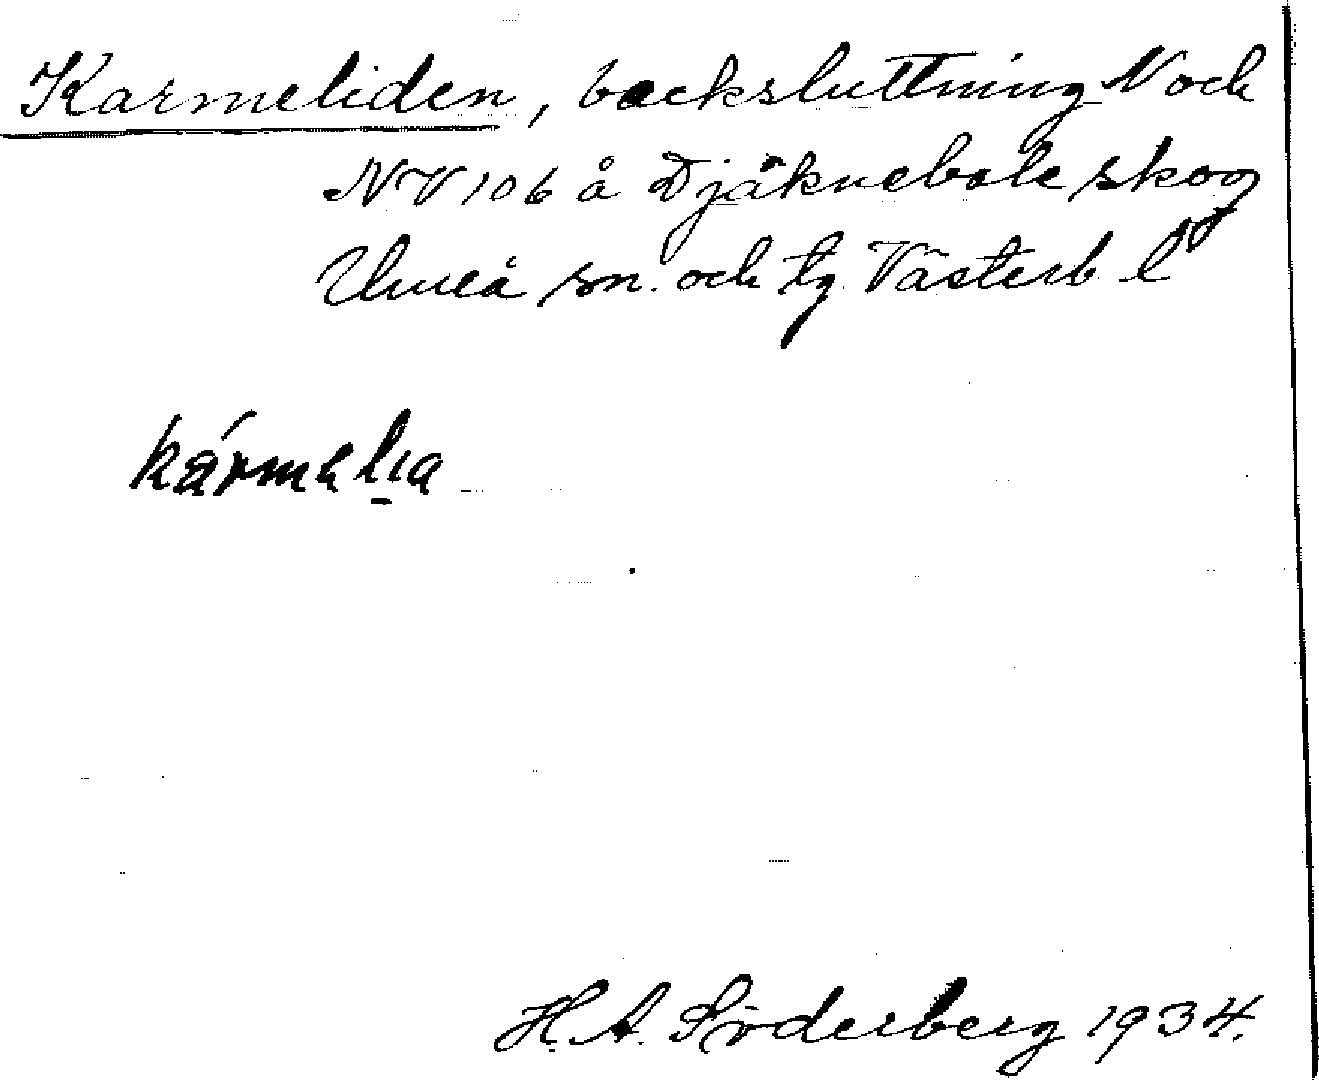 Karmeliden, backsluttning N och
NV 106 å Djäknebole skog
Umeå sn. och tg. Västerb. l
kármɐlia
H. A. Söderberg 1934.